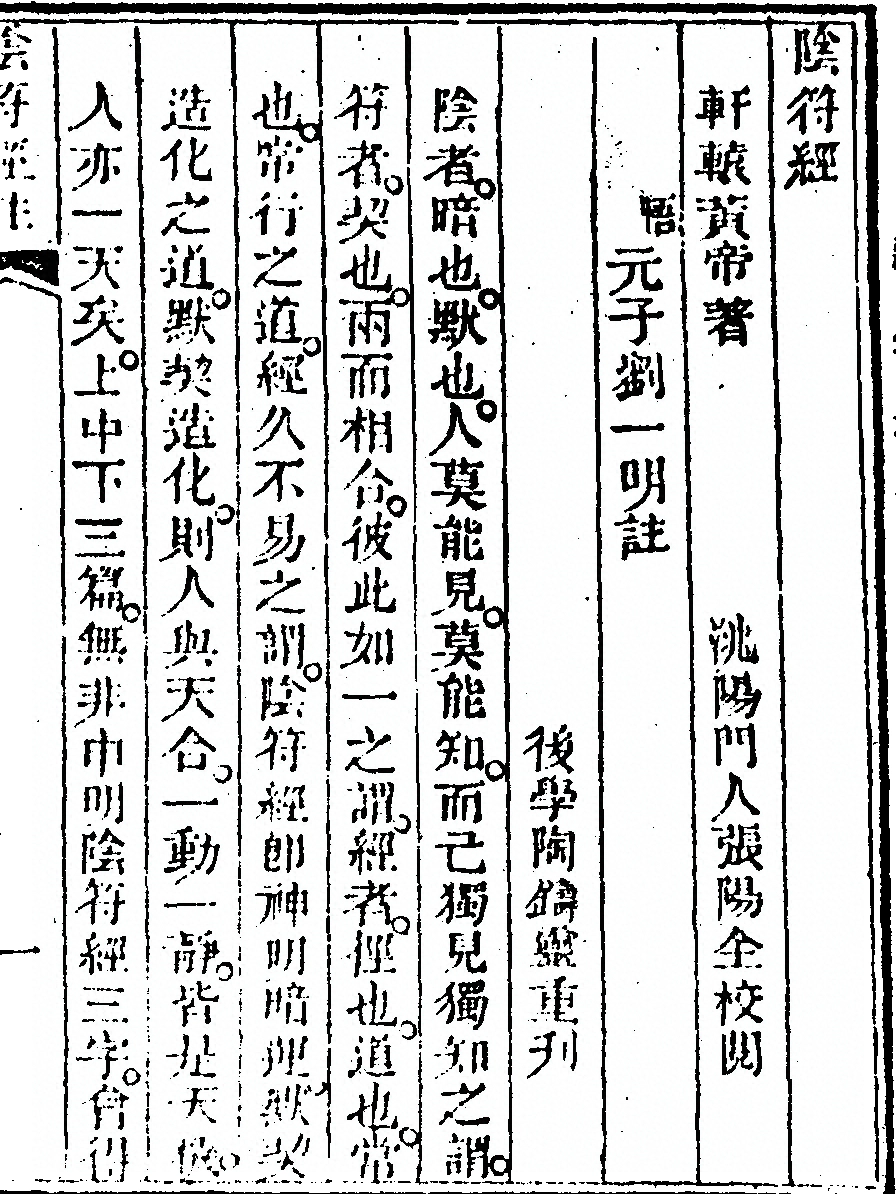 陰符經
軒轅黃帝著　洮陽門人張陽全校閱
悟元子劉一明註
後學陶鑄靈重刊
陰者。暗也。默也。人莫能見。莫能知。而己獨見獨知之謂。
符者。契也。兩而相合。彼此如一之謂。經者。徑也。道也。常
也。常行之道。經久不易之謂。陰符經卽神明暗運、默契
造化之道。默契造化。則人與天合。一動一靜。皆是天機。
人亦一天矣。上中下三篇。無非申明陰符經三字。會得
陰符經註　一